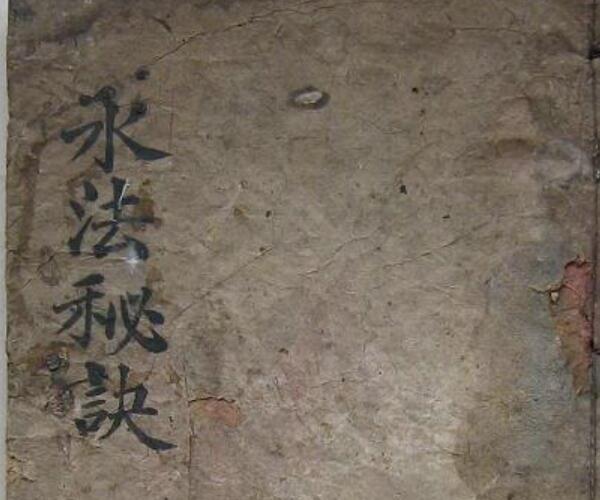 水法秘訣